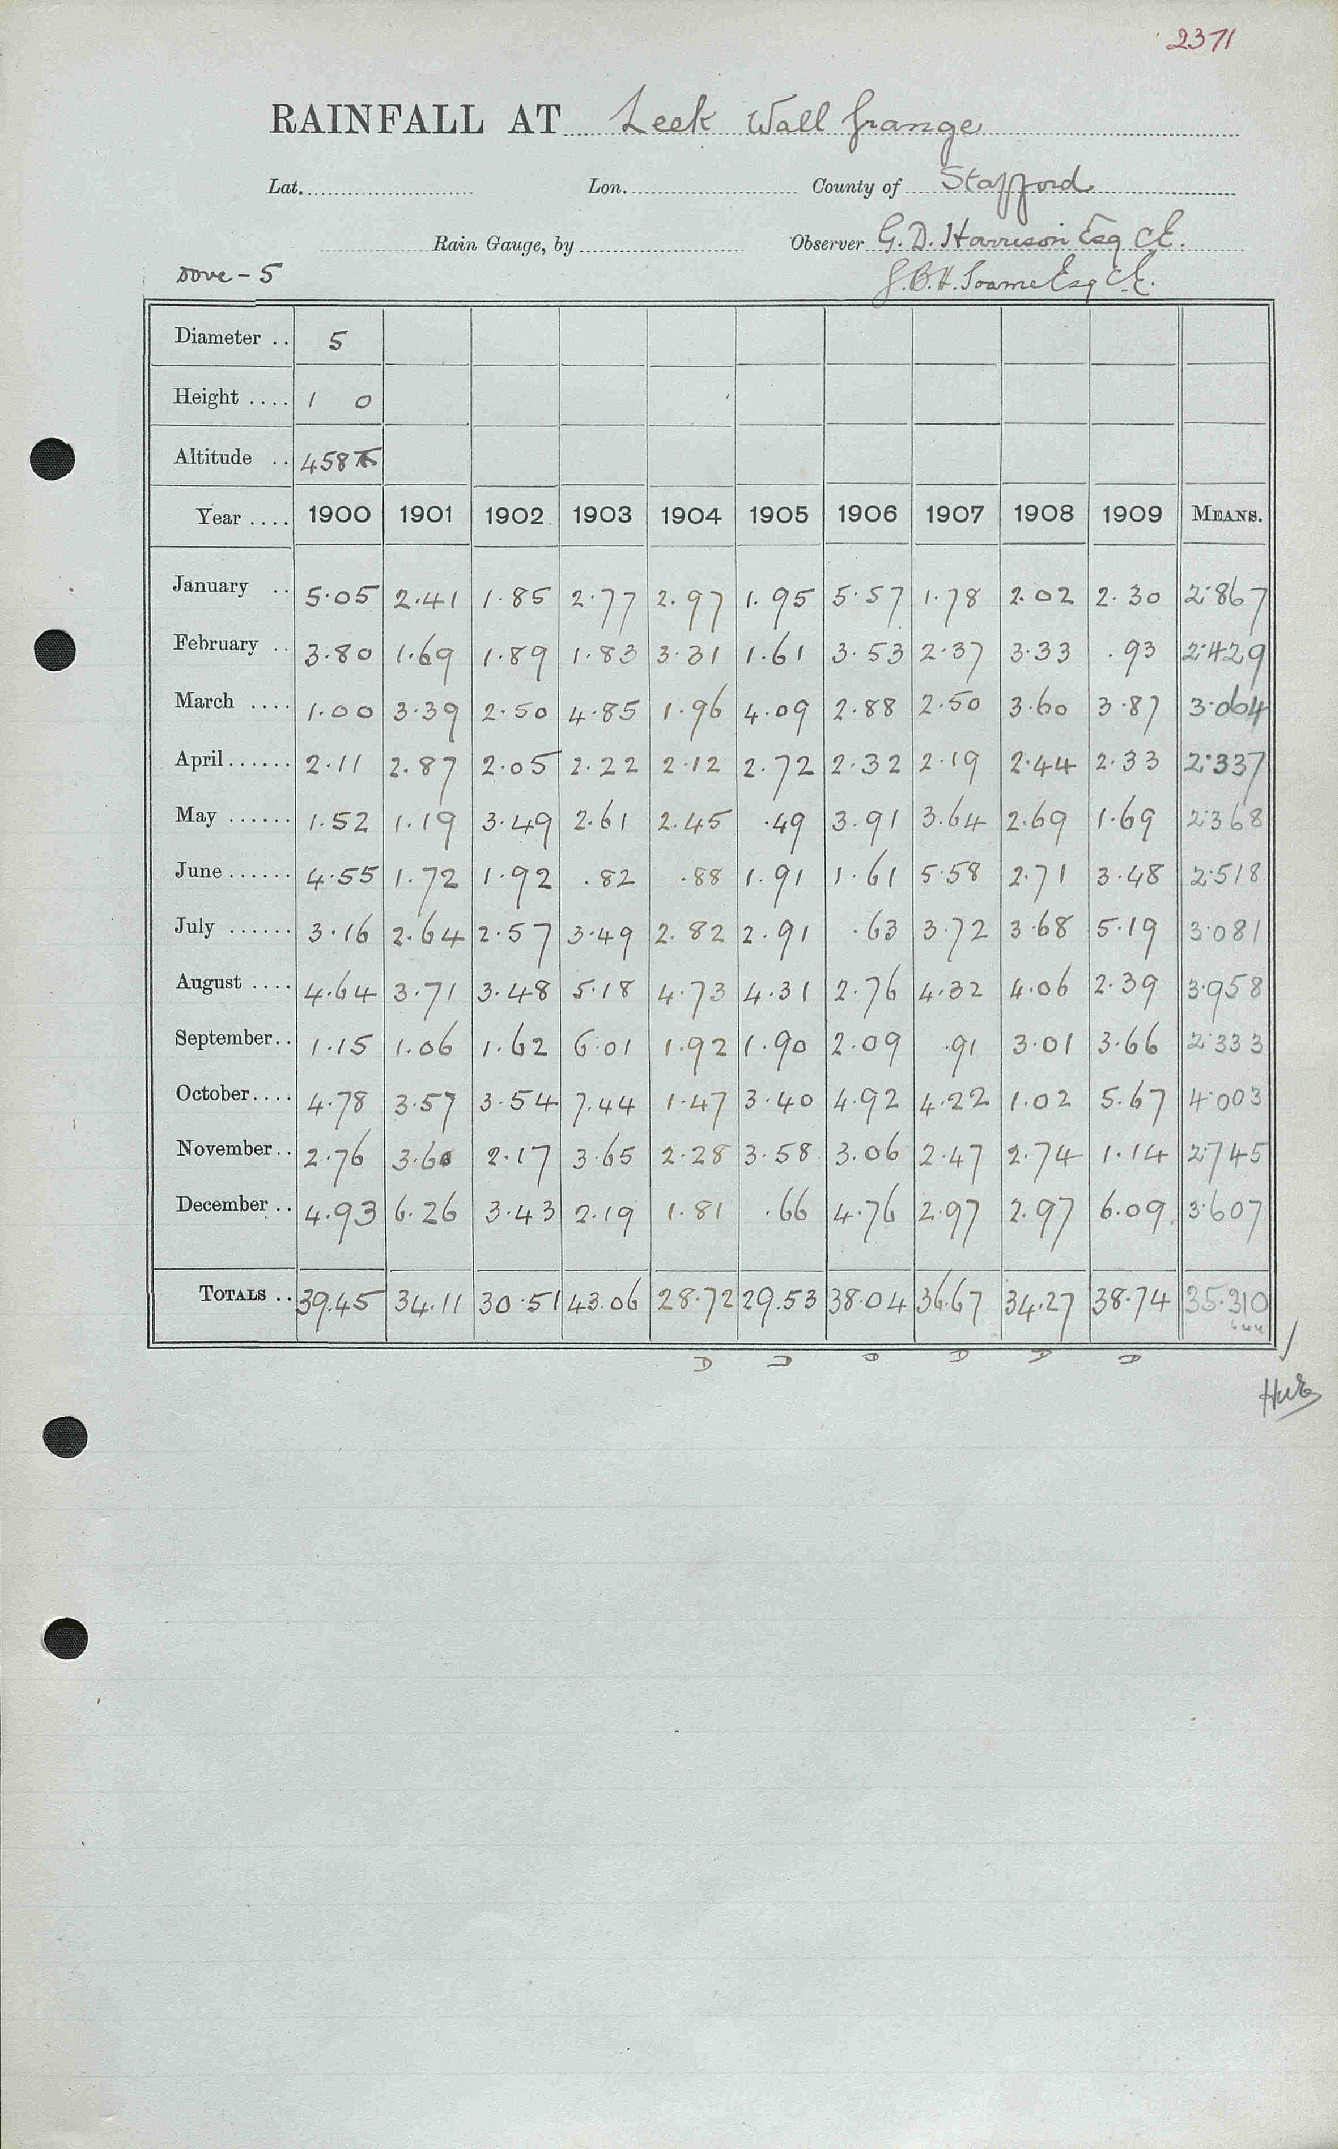 2371
RAINFALL AT Leek Wall Grange
Lat. Lon. County of Stafford
Rain Gauge, by Observer G. D. Harrison Esq C.E.
Dove - 5 J. B. H. Soame Esq C.E.
Diameter .. 5
Height .... 1 0
Altitude .. 458
Year .... 1900 1901 1902 1903 1904 1905 1906 1907 1908 1909 MEANS.
January .. 5.05 2.41 1.85 2.77 2.97 1.95 5.57 1.78 2.02 2.30 2.867
February .. 3.80 1.69 1.89 1.83 3.31 1.61 3.53 2.37 3.33 .93 2.429
March .... 1.00 3.39 2.50 4.85 1.96 4.09 2.88 2.50 3.60 3.87 3.064
April ...... 2.11 2.87 2.05 2.22 2.12 2.72 2.32 2.19 2.44 2.33 2.337
May ...... 1.52 1.19 3.49 2.61 2.45 .49 3.91 3.64 2.69 1.69 2.368
June ...... 4.55 1.72 1.92 .82 .88 1.91 1.61 5.58 2.71 3.48 2.518
July ...... 3.16 2.64 2.57 3.49 2.82 2.91 .63 3.72 3.68 5.19 3.081
August .... 4.64 3.71 3.48 5.18 4.73 4.31 2.76 4.32 4.06 2.39 3.958
September .. 1.15 1.06 1.62 6.01 1.92 1.90 2.09 .91 3.01 3.66 2.333
October .... 4.78 3.57 3.54 7.44 1.47 3.40 4.92 4.22 1.02 5.67 4.003
November .. 2.76 3.60 2.17 3.65 2.28 3.58 3.06 2.47 2.74 1.14 2.745
December .. 4.93 6.26 3.43 2.19 1.81 .66 4.76 2.97 2.97 6.09 3.607
TOTALS .. 39.45 34.11 30.51 43.06 28.72 29.53 38.04 36.67 34.27 38.74 35.310
D D D D D D